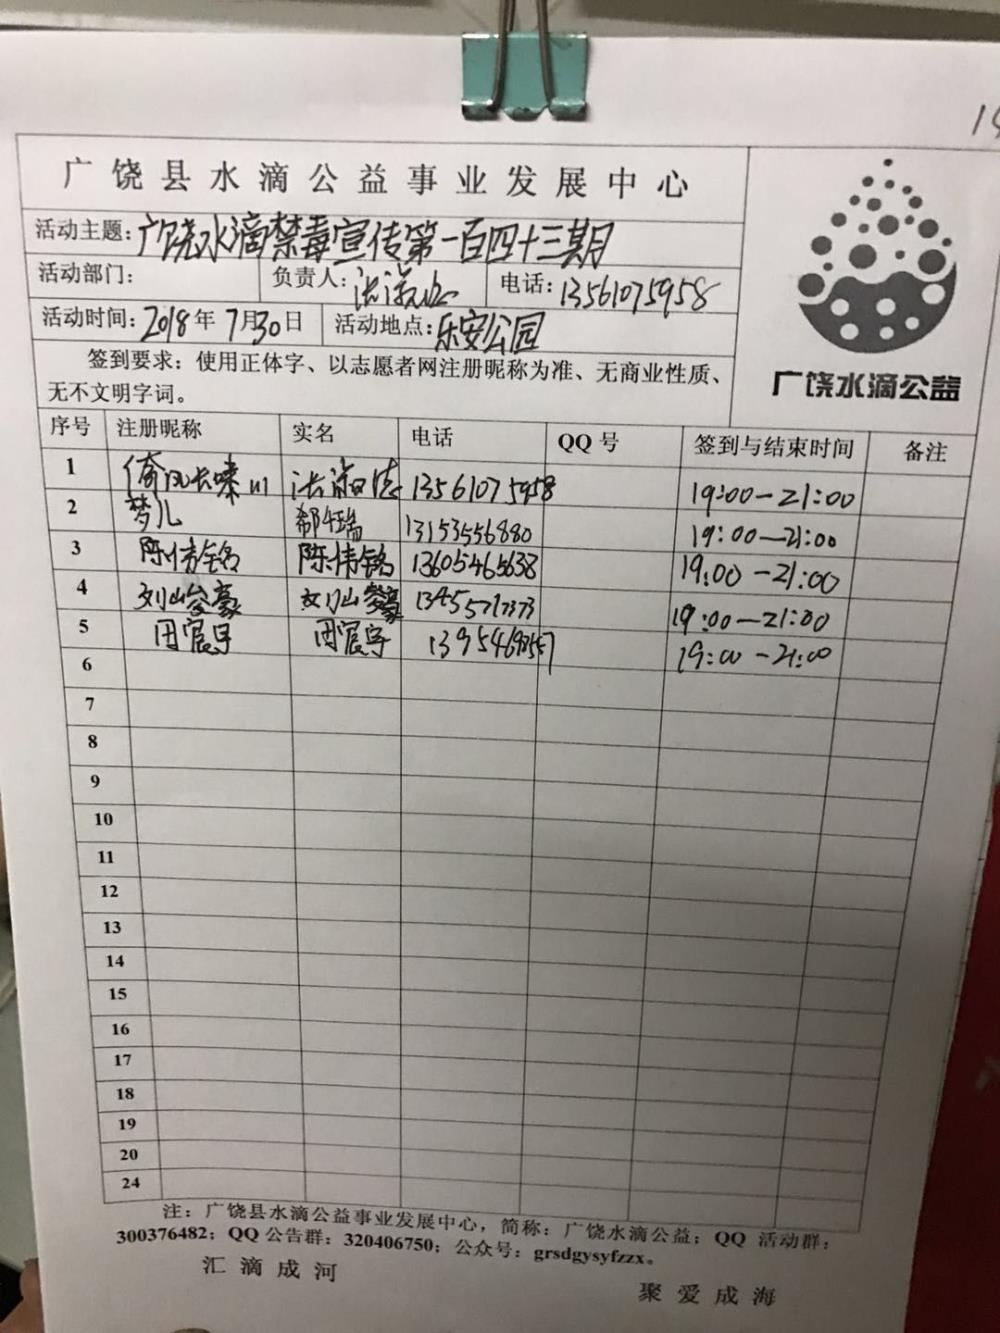 广饶县水滴公益事业发展中心
活动主题：广饶水滴禁毒宣传第一百四十三期
活动部门： 负责人： 电话：13561075958
活动时间：2018年7月30日 活动地点：乐安公园
签到要求：使用正体字、以志愿者网注册昵称为准、无商业性质、
无不文明字词。
广饶水滴公益
序号 注册昵称 实名 电话 QQ号 签到与结束时间 备注
1 倚风长啸川 13561075958 19:00-21:00
2 梦儿 13153556880 19:00-21:00
3 陈伟铭 陈伟铭 13605465638 19:00-21:00
4 刘峻豪 刘峻豪 13455717373 19:00-21:00
5 田宸宇 田宸宇 19:00-21:00
6
7
8
9
10
11
12
13
14
15
16
17
18
19
20
24
注：广饶县水滴公益事业发展中心，简称：广饶水滴公益；QQ 活动群：
300376482；QQ公告群：320406750；公众号：grsdgysyfzzx。
汇滴成河
聚爱成海